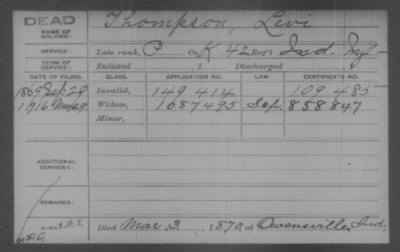 DEAD
NAME OF SOLDIER: Thompson, Levi
SERVICE: Late rank, P Co. K 42 Reg't Ind. Inf
TERM OF SERVICE: Enlisted , 1 Discharged , 1
DATE OF FILING. CLASS. APPLICATION NO. LAW. CERTIFICATE NO.
1869 Sep 29 Invalid, 149 414 109 485
1916 Nov 29 Widow, 1087495 858847
Minor,
ADDITIONAL SERVICES:
REMARKS:
Died Mar 3, 1870, at Owensville, Ind.